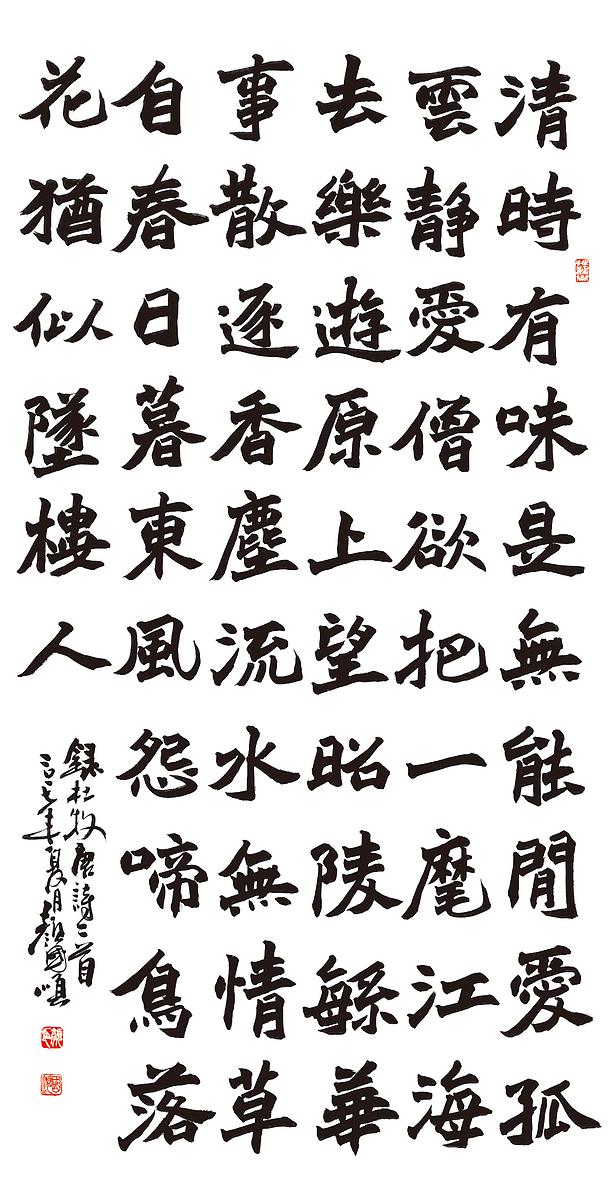 清時有味是無能閒愛孤
雲靜愛僧欲把一麾江海
去樂遊原上望昭陵緐華
事散逐香塵流水無情草
自春日暮東風怨啼鳥落
花猶似墜樓人
錄杜牧唐詩二首
二〇一七年夏月顏國順